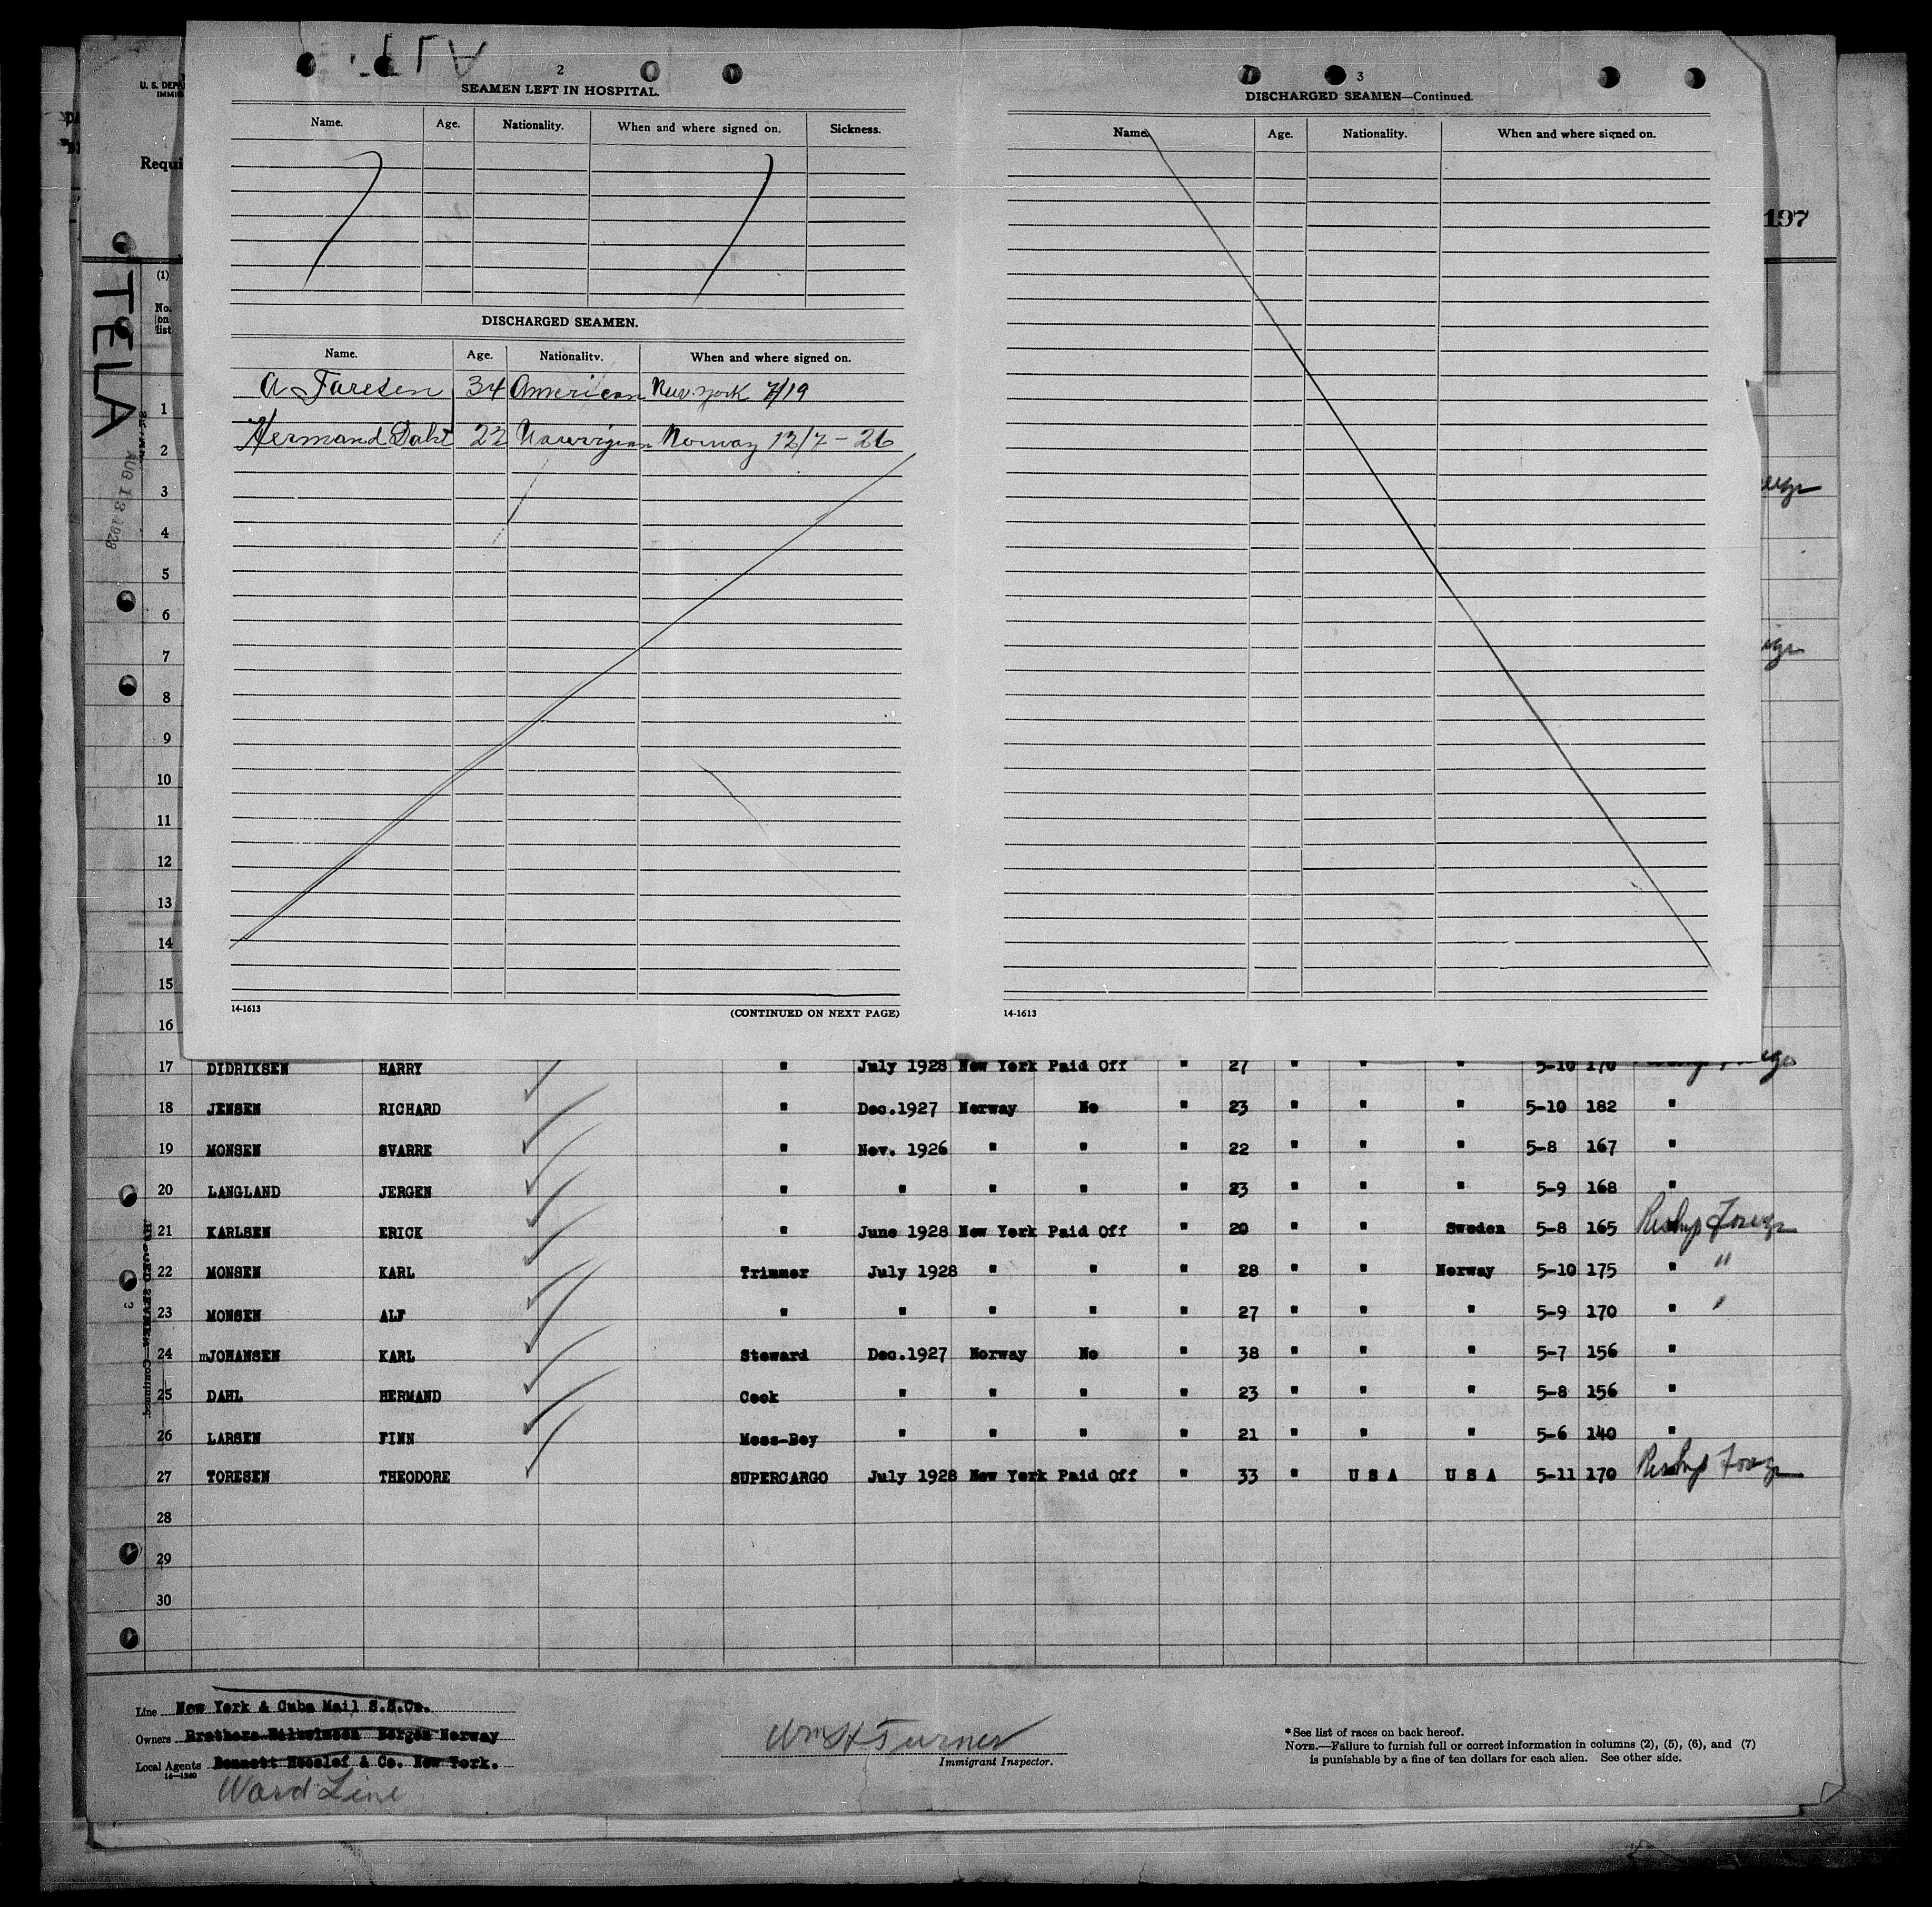 2
SEAMEN LEFT IN HOSPITAL.
Name. Age. Nationality. When and where signed on. Sickness.
DISCHARGED SEAMEN.
Name. Age. Nationality. When and where signed on.
A Faresen 34 American New York 7/19
Hermand Dahl 22 Norrvigean Norway 12/7 - 26
14-1613
(CONTINUED ON NEXT PAGE)
3
DISCHARGED SEAMEN—Continued.
Name. Age. Nationality. When and where signed on.
14-1613
U. S. DEPA
IMMIG
Requi
197
TELA
AUG 13 1928
(1)
No. on list
1
2
3
4
5
6
7
8
9
10
11
12
13
14
15
16
17 DIDRIKSEN HARRY " July 1928 New York Paid Off " 27 " " " 5-10 170
18 JENSEN RICHARD " Dec.1927 Norway No " 23 " " " 5-10 182 "
19 MONSEN SVARRE " Nov. 1926 " " " 22 " " " 5-8 167 "
20 LANGLAND JERGEN " " " " " 23 " " " 5-9 168 "
21 KARLSEN ERICK " June 1928 New York Paid Off " 20 " " Sweden 5-8 165
22 MONSEN KARL Trimmer July 1928 " " " 28 " " Norway 5-10 175 " "
23 MONSEN ALF " " " " " 27 " " " 5-9 170 "
24 mJOHANSEN KARL Steward Dec.1927 Norway No " 38 " " " 5-7 156 "
25 DAHL HERMAND Cook " " " " 23 " " " 5-8 156 "
26 LARSEN FINN Mess-Boy " " " " 21 " " " 5-6 140 "
27 TORESEN THEODORE SUPERCARGO July 1928 New York Paid Off " 33 " U S A U S A 5-11 170
28
29
30
Line New York & Cuba Mail S.S.Co.
Owners Brothers Bergen Norway
Local Agents & Co. New York.
14-1240
Ward Line
Wm H Turner
Immigrant Inspector.
* See list of races on back hereof.
NOTE.—Failure to furnish full or correct information in columns (2), (5), (6), and (7)
is punishable by a fine of ten dollars for each alien. See other side.